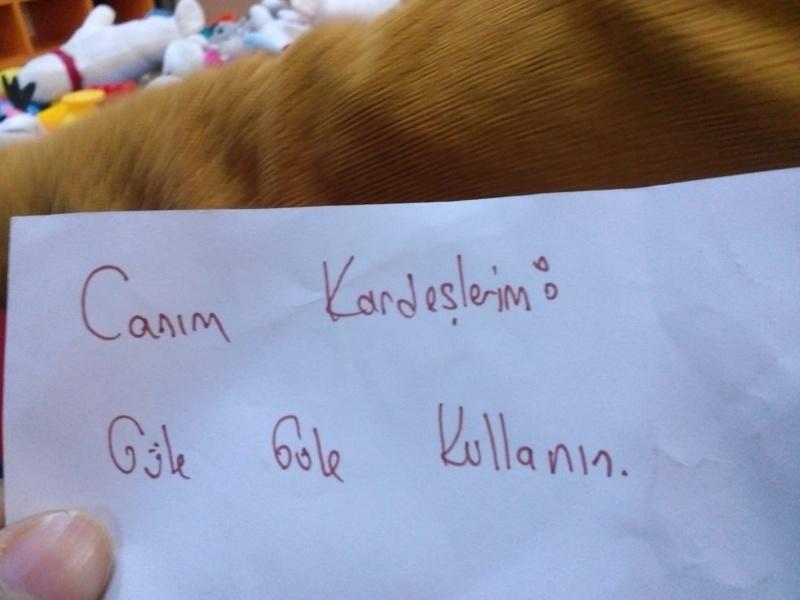 Canım Kardeşlerim:
Güle Güle Kullanın.